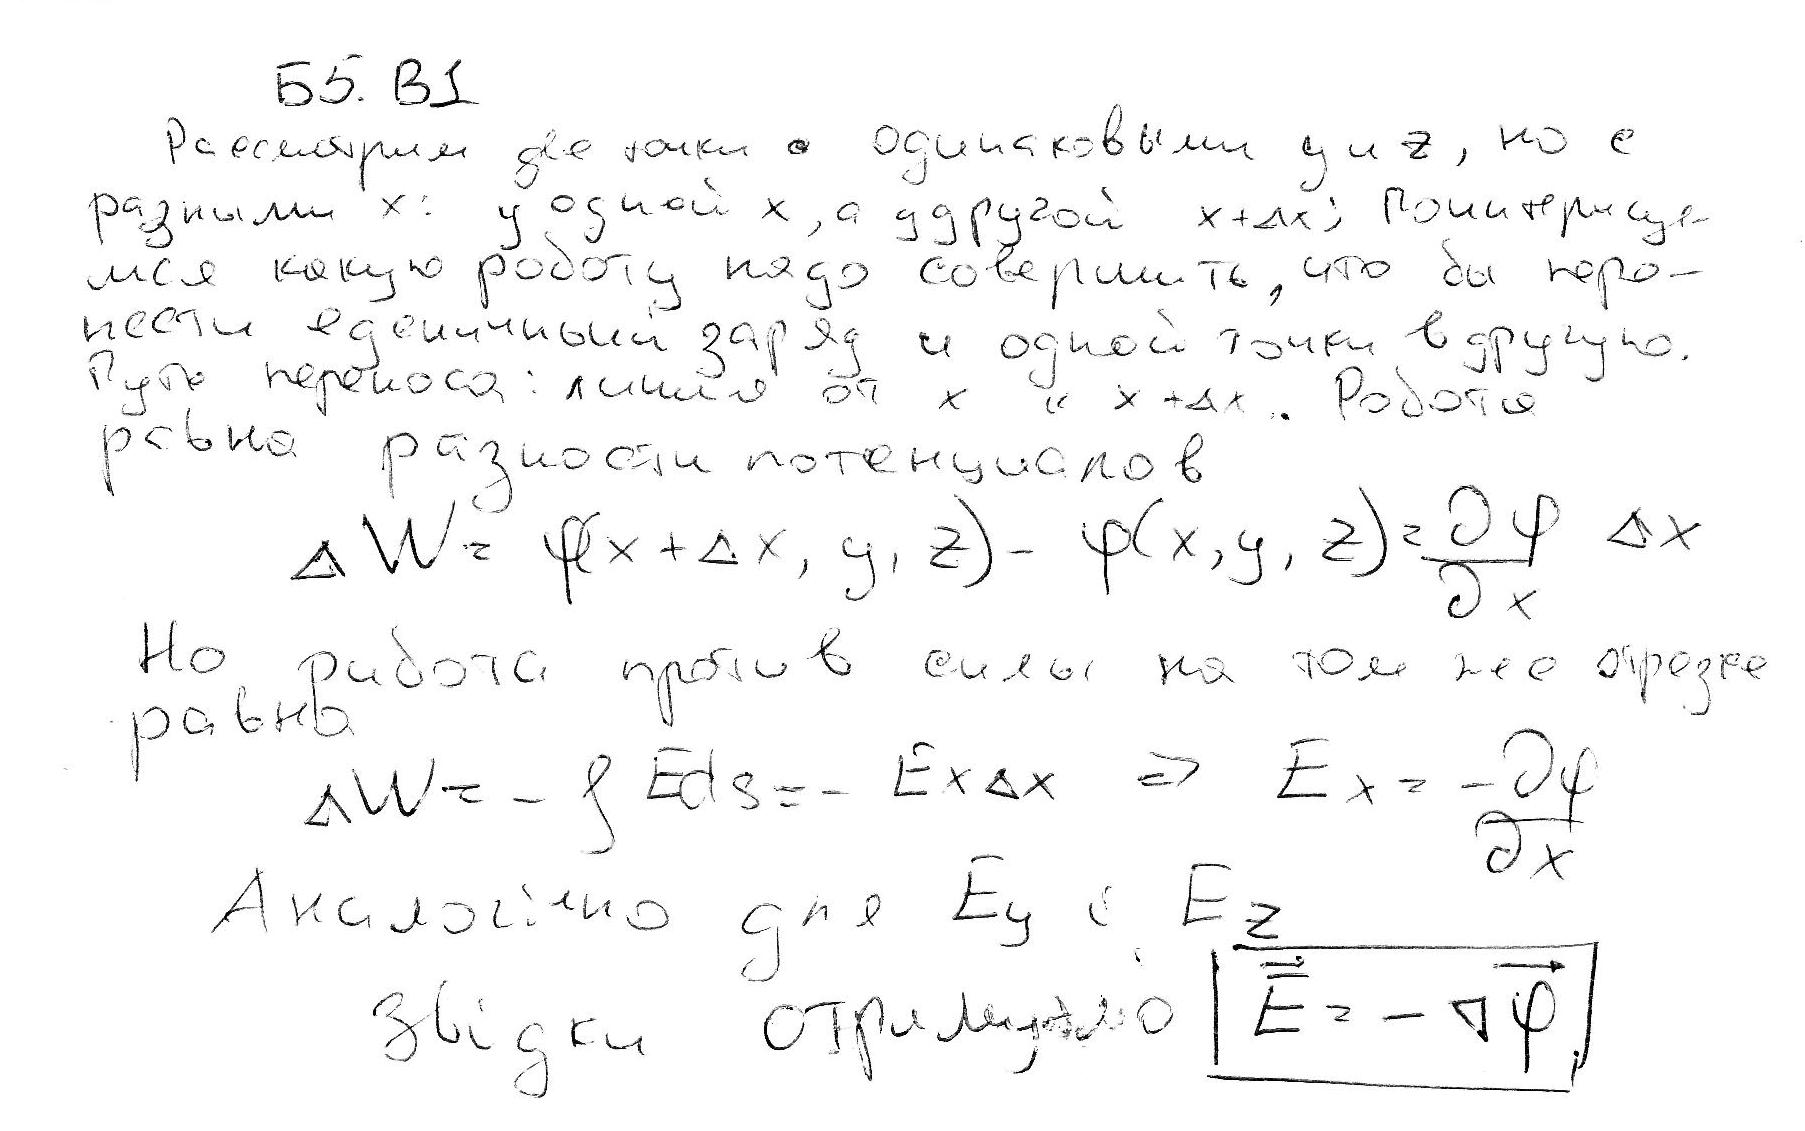 Б5. В1
Рассмотрим две точки с одинаковыми y и z, но с
разными x: у одной x, а у другой x+Δx; Поинтересуе-
мся какую работу надо совершить, что бы пере-
нести еденичный заряд и одной точки в другую.
Путь переноса: линия от x к x+Δx. Работа
равна разности потенциалов
ΔW = φ(x+Δx, y, z) - φ(x, y, z) = ∂φ/∂x Δx
Но работа против силы на том же отрезке
равна
ΔW = - ∫ Eds = - ExΔx => Ex = -∂φ/∂x
Аналогічно для Ey і Ez
Звідки отримуємо E⃗ = - ∇φ⃗